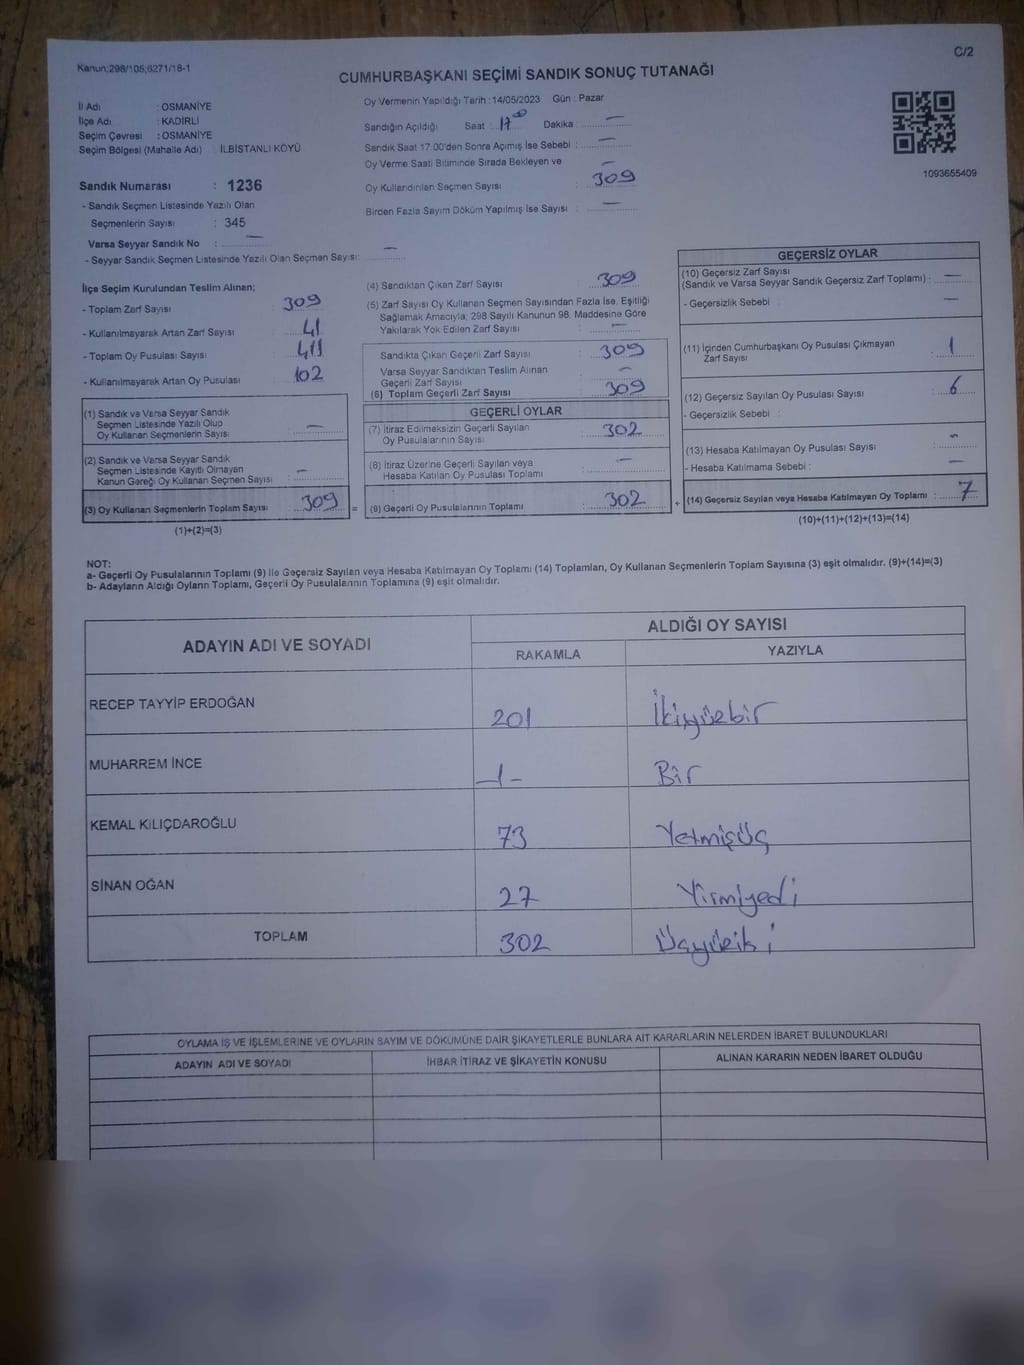 Kanun:298/105;6271/18-1
C/2
CUMHURBAŞKANI SEÇİMİ SANDIK SONUÇ TUTANAĞI
İl Adı : OSMANİYE
İlçe Adı : KADİRLİ
Seçim Çevresi : OSMANİYE
Seçim Bölgesi (Mahalle Adı) : İLBİSTANLI KÖYÜ
Sandık Numarası : 1236
- Sandık Seçmen Listesinde Yazılı Olan
Seçmenlerin Sayısı : 345
Varsa Seyyar Sandık No : —
- Seyyar Sandık Seçmen Listesinde Yazılı Olan Seçmen Sayısı: —
Oy Vermenin Yapıldığı Tarih : 14/05/2023 Gün : Pazar
Sandığın Açıldığı Saat : 17 00 Dakika : —
Sandık Saat 17:00'den Sonra Açımış İse Sebebi : —
Oy Verme Saati Bitiminde Sırada Bekleyen ve —
Oy Kullandırılan Seçmen Sayısı : 309
Birden Fazla Sayım Döküm Yapılmış İse Sayısı : —
1093655409
İlçe Seçim Kurulundan Teslim Alınan;
- Toplam Zarf Sayısı : 309
- Kullanılmayarak Artan Zarf Sayısı : 41
- Toplam Oy Pusulası Sayısı : 411
- Kullanılmayarak Artan Oy Pusulası : 102
(1) Sandık ve Varsa Seyyar Sandık
Seçmen Listesinde Yazılı Olup
Oy Kullanan Seçmenlerin Sayısı : —
(2) Sandık ve Varsa Seyyar Sandık
Seçmen Listesinde Kayıtlı Olmayan
Kanun Gereği Oy Kullanan Seçmen Sayısı : —
(3) Oy Kullanan Seçmenlerin Toplam Sayısı : 309
(1)+(2)=(3)
(4) Sandıktan Çıkan Zarf Sayısı : 309
(5) Zarf Sayısı Oy Kullanan Seçmen Sayısından Fazla İse, Eşitliği
Sağlamak Amacıyla; 298 Sayılı Kanunun 98. Maddesine Göre
Yakılarak Yok Edilen Zarf Sayısı : —
Sandıkta Çıkan Geçerli Zarf Sayısı : 309
Varsa Seyyar Sandıktan Teslim Alınan
Geçerli Zarf Sayısı : —
(6) Toplam Geçerli Zarf Sayısı : 309
GEÇERLİ OYLAR
(7) İtiraz Edilmeksizin Geçerli Sayılan
Oy Pusulalarının Sayısı : 302
(8) İtiraz Üzerine Geçerli Sayılan veya
Hesaba Katılan Oy Pusulası Toplamı : —
= (9) Geçerli Oy Pusulalarının Toplamı : 302
GEÇERSİZ OYLAR
(10) Geçersiz Zarf Sayısı
(Sandık ve Varsa Seyyar Sandık Geçersiz Zarf Toplamı) : —
- Geçersizlik Sebebi : —
(11) İçinden Cumhurbaşkanı Oy Pusulası Çıkmayan
Zarf Sayısı : 1
(12) Geçersiz Sayılan Oy Pusulası Sayısı : 6
- Geçersizlik Sebebi :
(13) Hesaba Katılmayan Oy Pusulası Sayısı : -
- Hesaba Katılmama Sebebi : —
+ (14) Geçersiz Sayılan veya Hesaba Katılmayan Oy Toplamı : 7
(10)+(11)+(12)+(13)=(14)
NOT:
a- Geçerli Oy Pusulalarının Toplamı (9) İle Geçersiz Sayılan veya Hesaba Katılmayan Oy Toplamı (14) Toplamları, Oy Kullanan Seçmenlerin Toplam Sayısına (3) eşit olmalıdır. (9)+(14)=(3)
b- Adayların Aldığı Oyların Toplamı, Geçerli Oy Pusulalarının Toplamına (9) eşit olmalıdır.
ADAYIN ADI VE SOYADI ALDIĞI OY SAYISI
RAKAMLA YAZIYLA
RECEP TAYYİP ERDOĞAN 201 İkiyüzbir
MUHARREM İNCE -1- Bir
KEMAL KILIÇDAROĞLU 73 Yetmişüç
SİNAN OĞAN 27 Yirmiyedi
TOPLAM 302 Üçyüziki
OYLAMA İŞ VE İŞLEMLERİNE VE OYLARIN SAYIM VE DÖKÜMÜNE DAİR ŞİKAYETLERLE BUNLARA AİT KARARLARIN NELERDEN İBARET BULUNDUKLARI
ADAYIN ADI VE SOYADI İHBAR İTİRAZ VE ŞİKAYETİN KONUSU ALINAN KARARIN NEDEN İBARET OLDUĞU